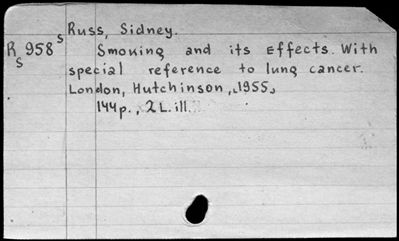 Russ, Sidney.
R 958 s
s
Smoking and its Effects. With
special reference to lung cancer.
London, Hutchinson, [1955]
144p., 2 L. ill.